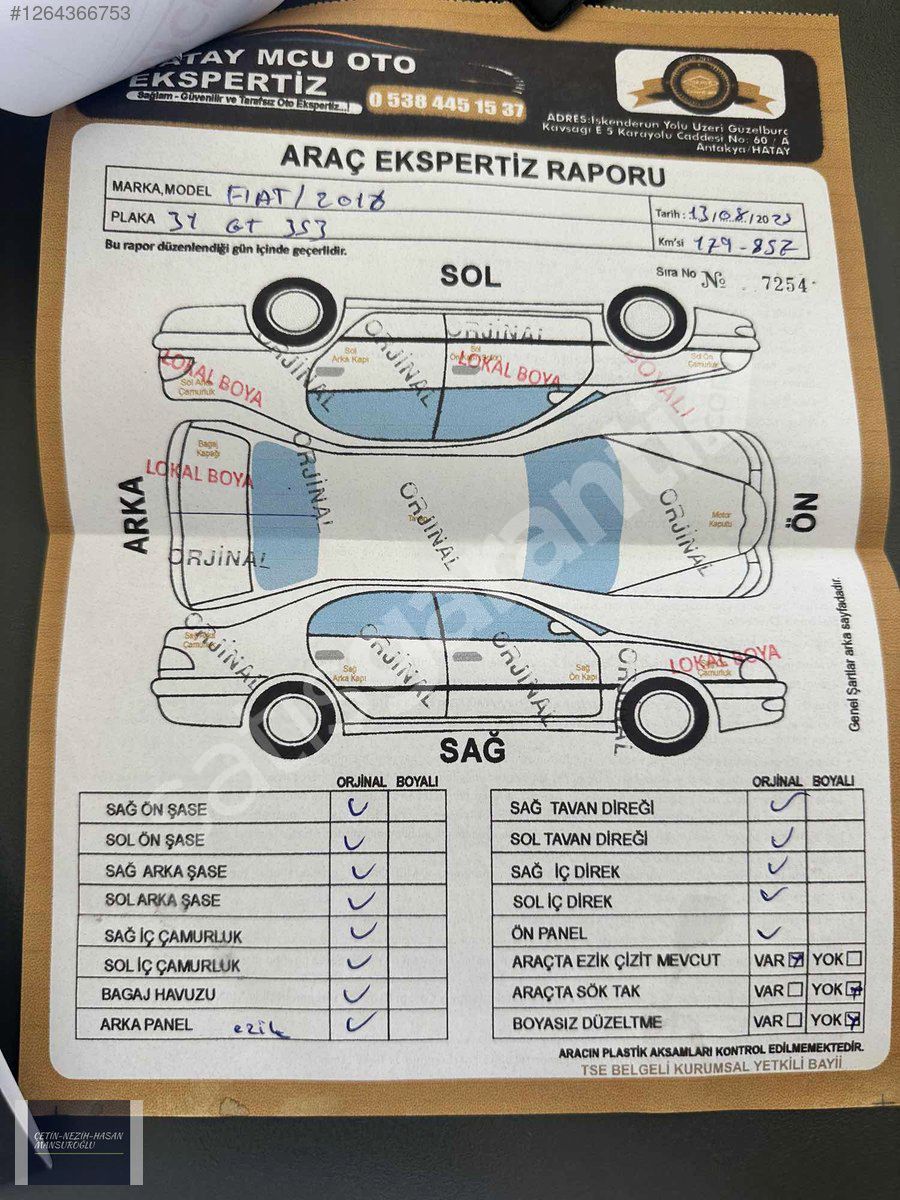 #1264366753
HATAY MCU OTO
EKSPERTİZ
Sağlam - Güvenilir ve Tarafsız Oto Ekspertiz...!
0 538 445 15 37
ADRES:İskenderun Yolu Üzeri Güzelburç
Kavşağı E 5 Karayolu Caddesi No: 60 / A
Antakya/HATAY
ARAÇ EKSPERTİZ RAPORU
MARKA,MODEL FIAT/2018
Tarih : 13/08/2025
PLAKA 31 GT 353
Km'si 179-857
Bu rapor düzenlendiği gün içinde geçerlidir.
SOL
Sıra No № 7254
ORJİNAL
ORJİNAL
ORJİNAL
Sol Arka Kapı
LOKAL BOYA
BOYALI
Sol Ön Çamurluk
LOKAL BOYA
Sol Arka Çamurluk
Bagaj Kapağı
LOKAL BOYA
ORJİNAL
ORJİNAL
ORJİNAL
ORJİNAL
Motor Kaputu
ARKA
ÖN
ORJİNAL
Genel Şartlar arka sayfadadır.
Sağ Arka Çamurluk
ORJİNAL
ORJİNAL
ORJİNAL
ORJİNAL
LOKAL BOYA
Çamurluk
Sağ Arka Kapı
Sağ Ön Kapı
SAĞ
sahibinden.com
ORJİNAL BOYALI
SAĞ ÖN ŞASE
SOL ÖN ŞASE
SAĞ ARKA ŞASE
SOL ARKA ŞASE
SAĞ İÇ ÇAMURLUK
SOL İÇ ÇAMURLUK
BAGAJ HAVUZU
ARKA PANEL ezik
ORJİNAL BOYALI
SAĞ TAVAN DİREĞİ
SOL TAVAN DİREĞİ
SAĞ İÇ DİREK
SOL İÇ DİREK
ÖN PANEL
ARAÇTA EZİK ÇİZİT MEVCUT VAR YOK
ARAÇTA SÖK TAK VAR YOK
BOYASIZ DÜZELTME VAR YOK
ARACIN PLASTİK AKSAMLARI KONTROL EDİLMEMEKTEDİR.
TSE BELGELİ KURUMSAL YETKİLİ BAYİİ
ÇETİN-NEZİH-HASAN
MANSUROĞLU